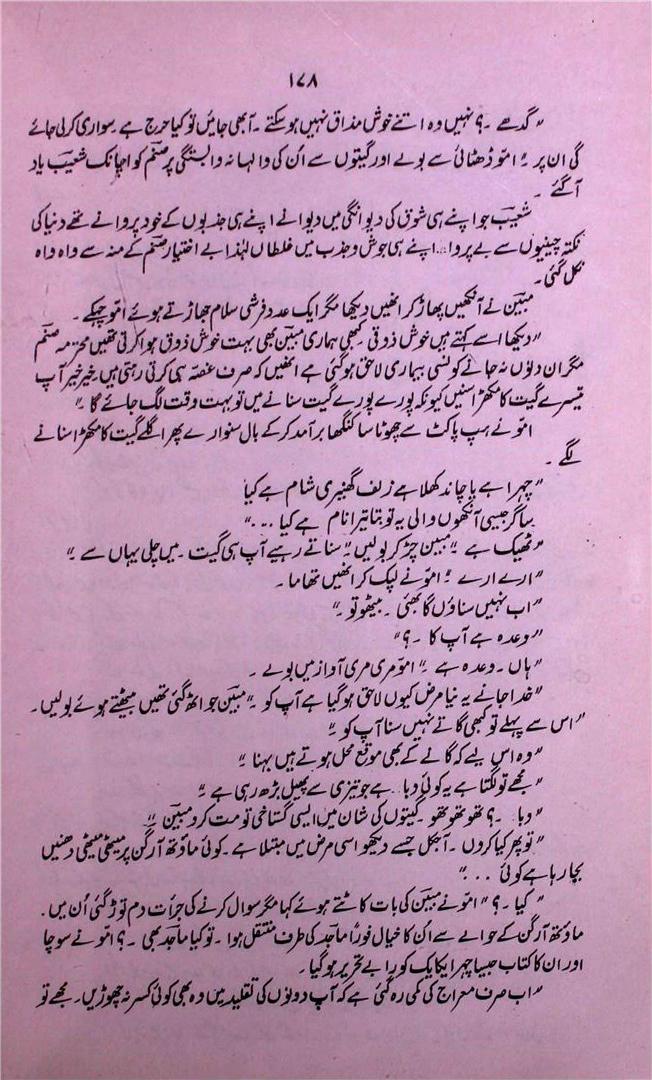 ۱۷۸
"گدھے ۔؟ نہیں وہ اتنے خوش مذاق نہیں ہو سکتے ۔ آبھی جائیں تو کیا حرج ہے ۔ سواری کرلی جائے
گی ان پر ۔" امّو ڈھٹائی سے بولے اور گیتوں سے اُن کی والہانہ وابستگی پر صنّم کو اچانک شعیب یاد
آ گئے ۔
شعیب جو اپنے ہی شوق کی دیوانگی میں دیوانے اپنے ہی جذبوں کے خود پروانے تھے دنیا کی
نکتہ چینیوں سے بے پروا ۔ اپنے ہی جوش و جذب میں غلطاں لہٰذا بے اختیار صنّم کے منہ سے واہ واہ
نکل گئی ۔
مبین نے آنکھیں پھاڑ کر انھیں دیکھا مگر ایک عدد فرشی سلام جھاڑتے ہوئے امّو چہکے ۔
"دیکھا اسے کہتے ہیں خوش ذوقی کبھی ہماری مبین بھی بہت خوش ذوق ہوا کرتی تھیں محترمہ صنّم
مگر ان دنوں نہ جانے کونسی بیماری لاحق ہو گئی ہے انھیں کہ صرف غصّہ ہی کرتی رہتی ہیں ۔ خیر خیر آپ
تیسرے گیت کا مکھڑا سنیں کیونکہ پورے پورے گیت سنانے میں تو بہت وقت لگ جائے گا ۔"
امّو نے ہپ پاکٹ سے چھوٹا سا کنگھا برآمد کر کے بال سنوارے پھر اگلے گیت کا مکھڑا سنانے
لگے ۔
"چہرا ہے یا چاند کھلا ہے زلف گھنیری شام ہے کیا
ساگر جیسی آنکھوں والی یہ تو بتا تیرا نام ہے کیا ..."
"ٹھیک ہے ۔" مبین چڑ کر بولیں ۔" سناتے رہیے آپ ہی گیت ۔ میں چلی یہاں سے ۔"
"ارے ارے ۔" امّو نے لپک کر انھیں تھاما ۔
"اب نہیں سناؤں گا بھئی ۔ بیٹھو تو ۔"
"وعدہ ہے آپ کا ۔؟"
"ہاں ۔ وعدہ ہے ۔" امّو مری مری آواز میں بولے ۔
"خدا جانے یہ نیا مرض کیوں لاحق ہو گیا ہے آپ کو ۔" مبین جو اٹھ گئی تھیں بیٹھتے ہوئے بولیں ۔
"اس سے پہلے تو کبھی گاتے نہیں سنا آپ کو ۔"
"وہ اس لیے کہ گانے کے بھی موقع محل ہوتے ہیں بہنا ۔"
"مجھے تو لگتا ہے یہ کوئی وبا ہے جو تیزی سے پھیل بڑھ رہی ہے ۔"
"وبا ۔؟ تھو تھو تھو ۔ گیتوں کی شان میں ایسی گستاخی تو مت کرو مبین ۔"
"تو پھر کیا کروں ۔ آجکل جسے دیکھو اسی مرض میں مبتلا ہے ۔ کوئی ماؤتھ آرگن پر میٹھی میٹھی دھنیں
بجا رہا ہے کوئی ..."
"کیا ۔؟" امّو نے مبین کی بات کاٹتے ہوئے کہا مگر سوال کرنے کی جرأت دم توڑ گئی اُن میں ۔
ماؤتھ آرگن کے حوالے سے اُن کا خیال فوراً ماجد کی طرف منتقل ہوا ۔ تو کیا ماجد بھی ۔؟ امّو نے سوچا
اور ان کا کتاب جیسا چہرا یکایک کورا بے تحریر ہو گیا ۔
"اب صرف معراج کی کمی رہ گئی ہے کہ آپ دونوں کی تقلید میں وہ بھی کوئی کسر نہ چھوڑیں ۔ مجھے تو